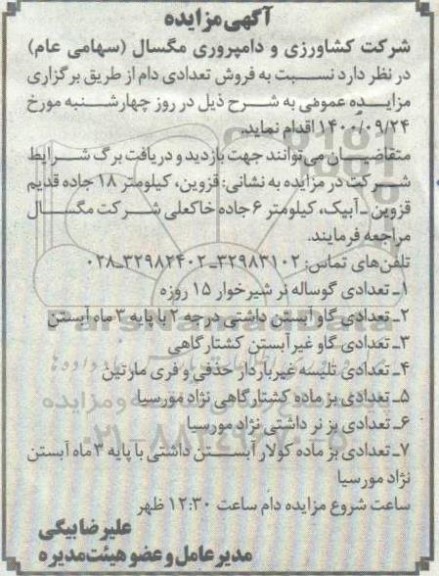 آگهی مزایده
شرکت کشاورزی و دامپروری مگسال (سهامی عام)
در نظر دارد نسبت به فروش تعدادی دام از طریق برگزاری
مزایده عمومی به شرح ذیل در روز چهارشنبه مورخ
۱۴۰۰/۰۹/۲۴ اقدام نماید.
متقاضیان می‌توانند جهت بازدید و دریافت برگ شرایط
شرکت در مزایده به نشانی: قزوین، کیلومتر ۱۸ جاده قدیم
قزوین ـ آبیک، کیلومتر ۶ جاده خاکعلی شرکت مگسال
مراجعه فرمایند.
تلفن‌های تماس: ۳۲۹۸۳۱۰۲ـ۳۲۹۸۲۴۰۲ـ۰۲۸
۱ـ تعدادی گوساله نر شیرخوار ۱۵ روزه
۲ـ تعدادی گاو آبستن داشتی درجه ۲ با پایه ۳ ماه آبستن
۳ـ تعدادی گاو غیرآبستن کشتارگاهی
۴ـ تعدادی تلیسه غیرباردار حذفی و فری مارتین
۵ـ تعدادی بز ماده کشتارگاهی نژاد مورسیا
۶ـ تعدادی بز نر داشتی نژاد مورسیا
۷ـ تعدادی بز ماده کولار آبستن داشتی با پایه ۳ ماه آبستن
نژاد مورسیا
ساعت شروع مزایده دام ساعت ۱۲:۳۰ ظهر
علیرضا بیگی
مدیرعامل و عضو هیئت‌مدیره
ParsNamadData
۰۲۱-۸۸۳۴۹۶۷۰-۵